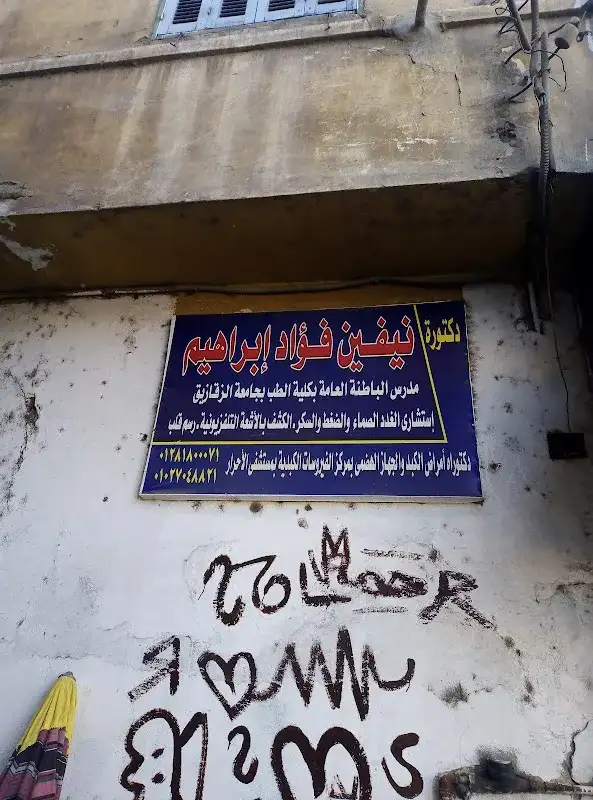 دكتورة
نيفين فؤاد إبراهيم
مدرس الباطنة العامة بكلية الطب بجامعة الزقازيق
إستشارى الغدد الصماء والضغط والسكر. الكشف بالأشعة التلفزيونية . رسم قلب
دكتوراه أمراض الكبد والجهاز الهضمى بمركز الفيروسات الكبدية بمستشفى الأحرار
٠١٢٨١٨٠٠٠٧١
٠١٠٢٧٠٤٨٨٢١